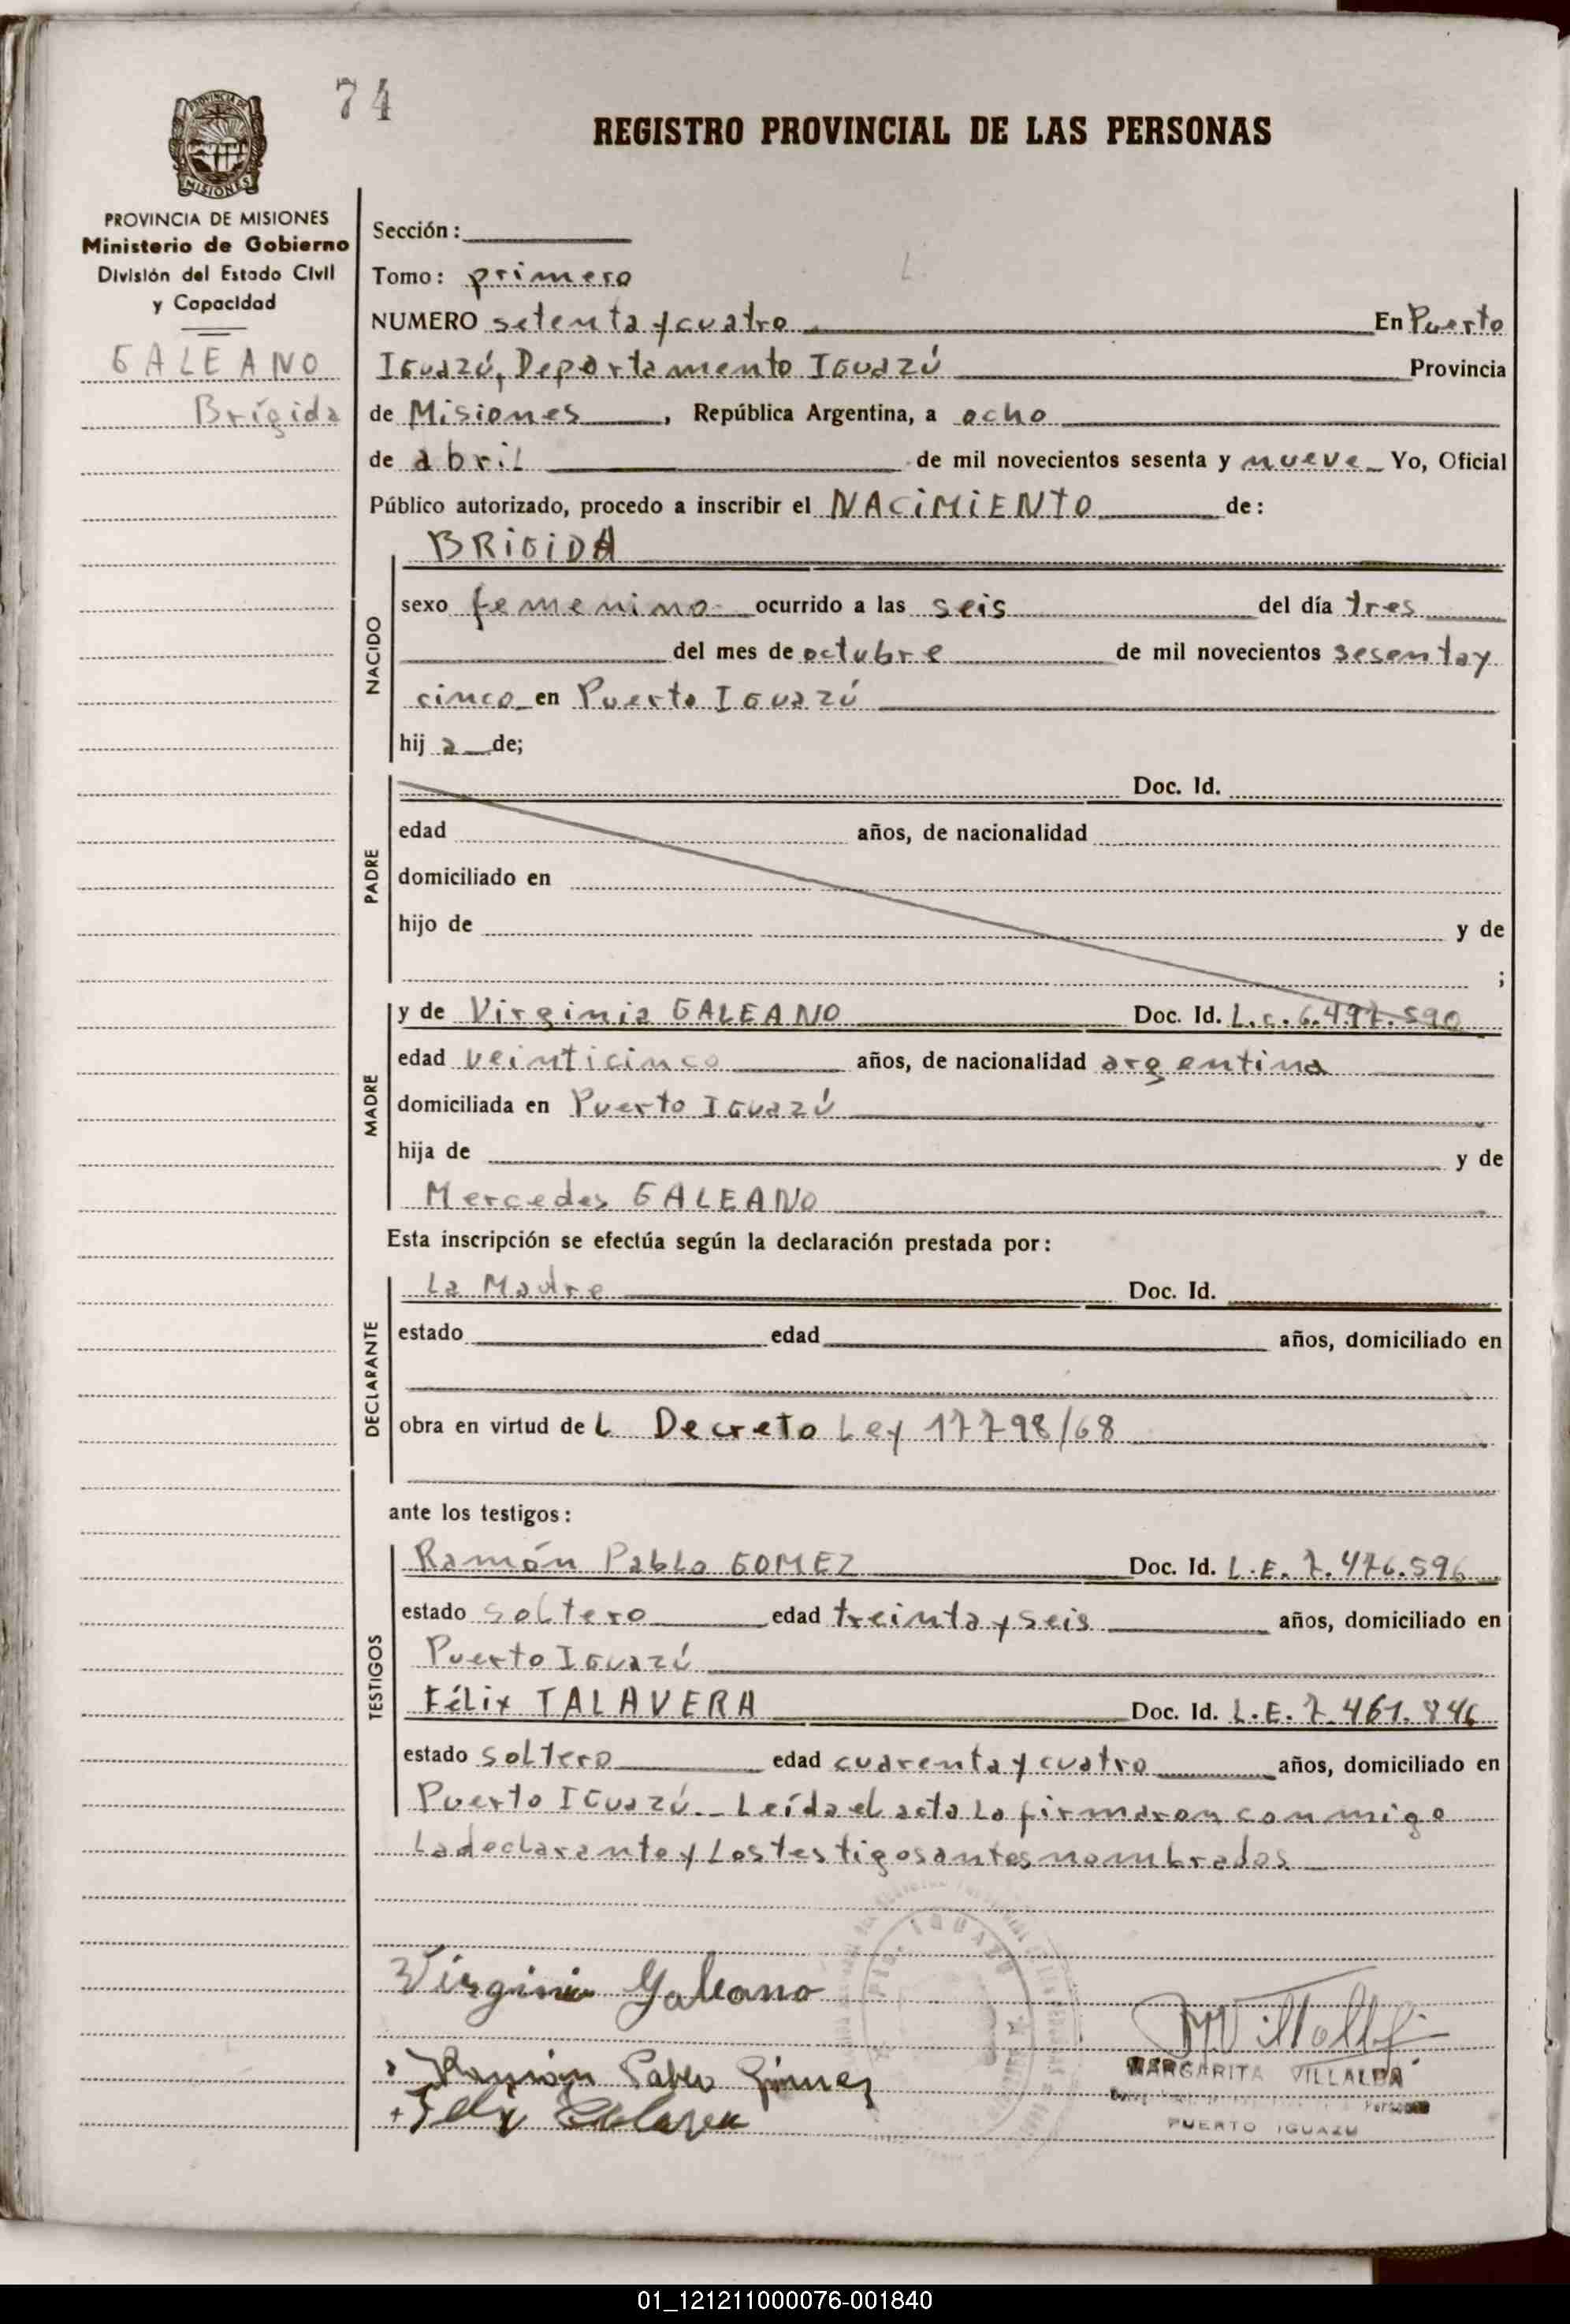 74
REGISTRO PROVINCIAL DE LAS PERSONAS
PROVINCIA DE MISIONES
Ministerio de Gobierno
División del Estado Civil
y Capacidad
GALEANO
Brígida
Sección:
Tomo: primero
NUMERO setenta y cuatro En Puerto
Iguazú, Departamento Iguazú Provincia
de Misiones, República Argentina, a ocho
de abril de mil novecientos sesenta y nueve Yo, Oficial
Público autorizado, procedo a inscribir el NACIMIENTO de:
BRIGIDA
NACIDO
sexo femenino ocurrido a las seis del día tres
del mes de octubre de mil novecientos sesenta y
cinco en Puerto Iguazú
hija de;
PADRE
Doc. Id.
edad años, de nacionalidad
domiciliado en
hijo de y de
;
MADRE
y de Virginia GALEANO Doc. Id. L.c. 6.497.590
edad veinticinco años, de nacionalidad argentina
domiciliada en Puerto Iguazú
hija de y de
Mercedes GALEANO
Esta inscripción se efectúa según la declaración prestada por:
DECLARANTE
La Madre Doc. Id.
estado edad años, domiciliado en
obra en virtud de L Decreto Ley 17798/68
ante los testigos:
TESTIGOS
Ramón Pablo GOMEZ Doc. Id. L.E. 7.476.596
estado soltero edad treinta y seis años, domiciliado en
Puerto Iguazú
Félix TALAVERA Doc. Id. L.E. 7.461.846
estado soltero edad cuarenta y cuatro años, domiciliado en
Puerto Iguazú.- Leída el acta la firmaron conmigo
la declarante y los testigos antes nombrados
Virginia Galeano
Ramón Pablo
Felix
MARGARITA VILLALBA
PUERTO IGUAZU
01_121211000076-001840